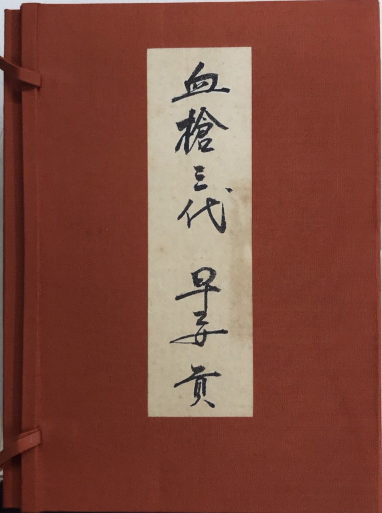 血槍三代 早乙女貢